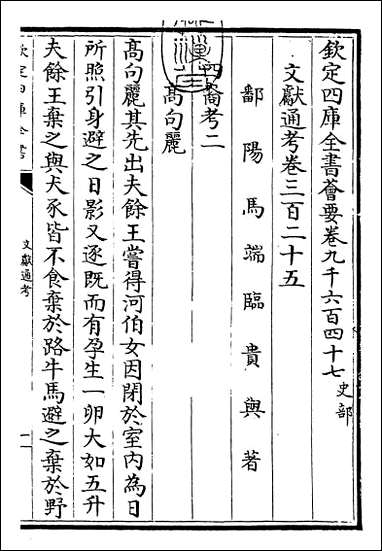 欽定四庫全書薈要卷九千六百四十七 史部
文獻通考卷三百二十五
鄱陽馬端臨貴與著
四裔考二
高向麗
高向麗其先出夫餘王嘗得河伯女因閉於室內為日
所照引身避之日影又逐既而有孕生一卵大如五升
夫餘王棄之與犬豕皆不食棄於路牛馬避之棄於野
文獻通考
一